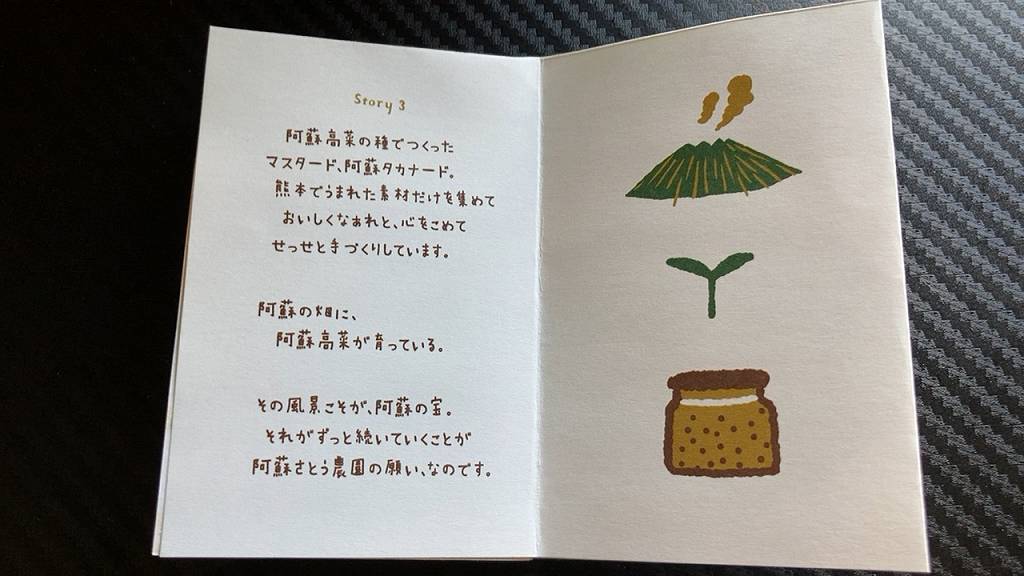 Story 3
阿蘇高菜の種でつくった
マスタード、阿蘇タカナード。
熊本でうまれた素材だけを集めて
おいしくなぁれと、心をこめて
せっせと手づくりしています。
阿蘇の畑に、
阿蘇高菜が育っている。
その風景こそが、阿蘇の宝。
それがずっと続いていくことが
阿蘇さとう農園の願い、なのです。